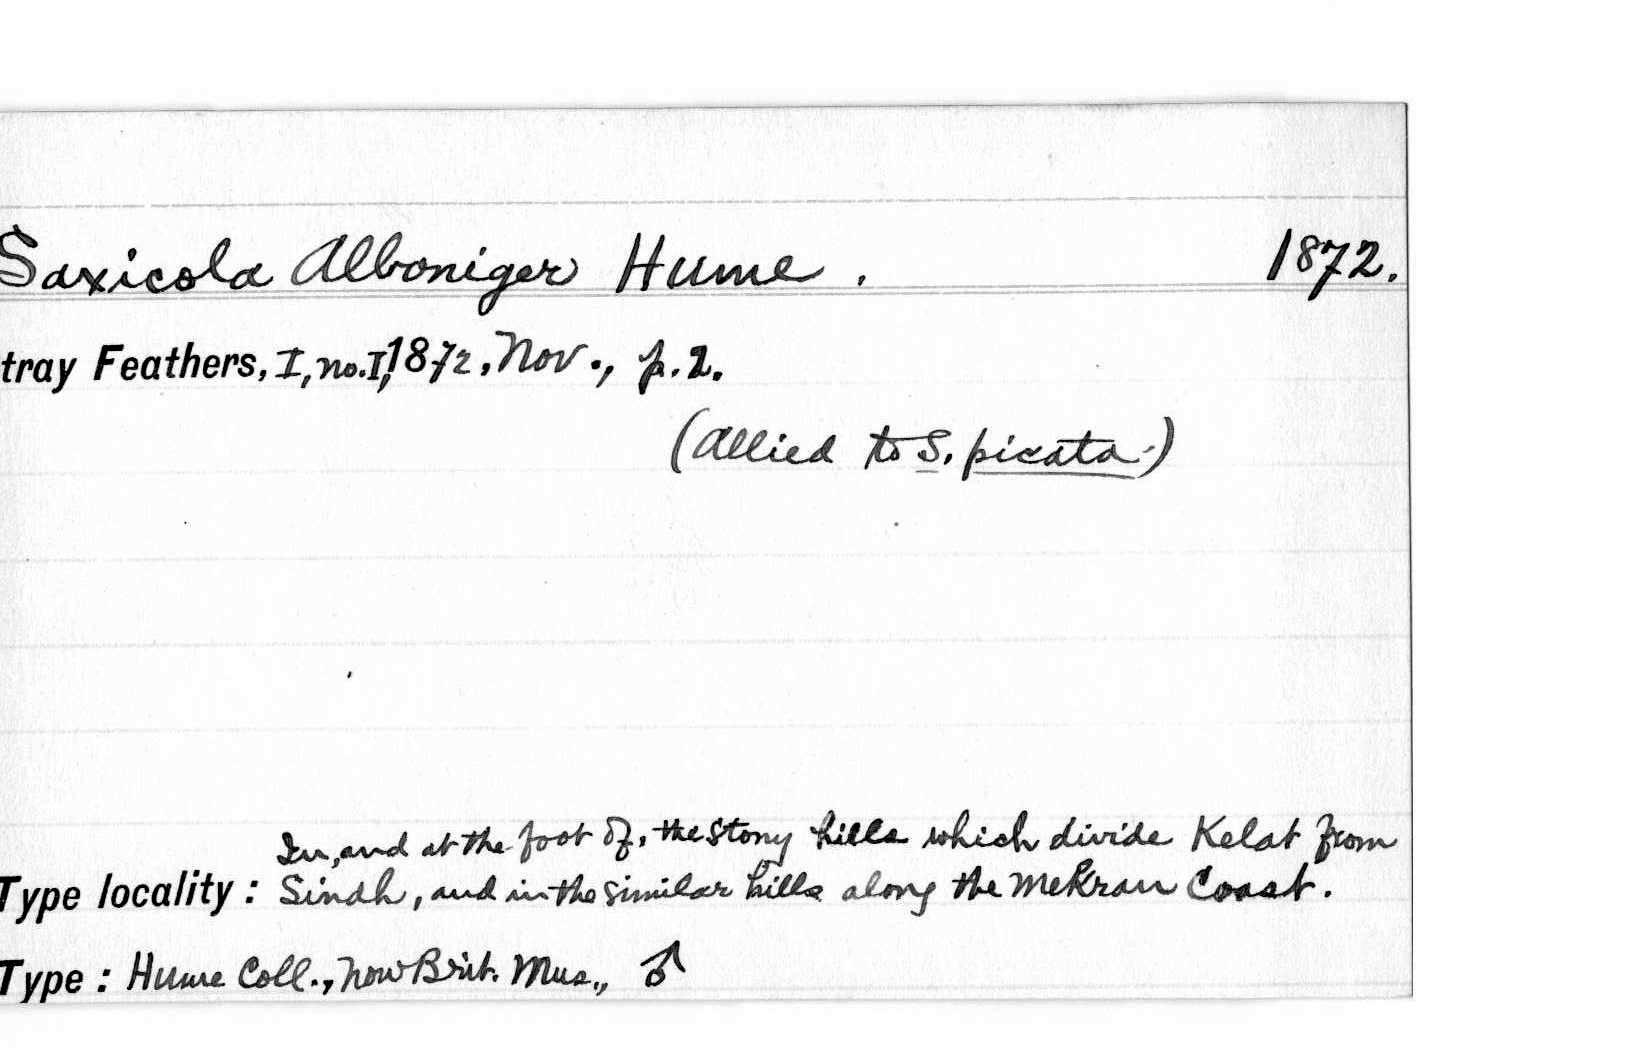 Saxicola Alboniger Hume. 1872.
tray Feathers, I, no. I, 1872, Nov., p. 2.
(Allied to S. picata.)
In, and at the foot of, the stony hills which divide Kelat from
Type locality: Sindh, and in the similar hills along the Mekran Coast.
Type: Hume Coll., now Brit. Mus., ♂